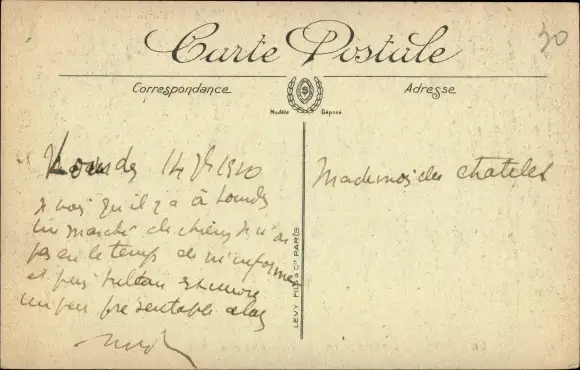 Carte Postale
30
Correspondance
Adresse
Modèle Déposé
Lourdes 14 1920
je vois qu'il y a à Lourdes
un marché de chiens je n'ai
pas eu le temps de m'informer
et puis Sultan encore
un peu présentable alors
Mademoiselle Chatelet
LEVY FILS & Cie PARIS